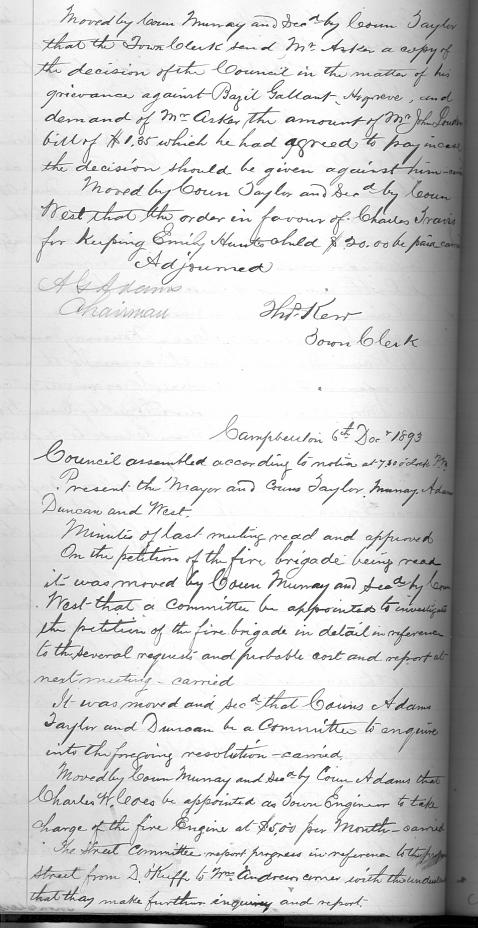 Moved by Coun Murray and Secd by Coun Taylor
that the Town Clerk send Mr Asker a copy of
the decision of the Council in the matter of his
grievance against Bazil Gallant, Hogreve, and
demand of Mr Asker, the amount of Mr John
bill of $1.35 which he had agreed to pay incase
the decision should be given against him
Moved by Coun Taylor and Secd by Coun
West that the order in favour of Charles Travis
for Keeping Emily Hunts child $20.00 be paid
Adjourned
A G Adams
Chairman
Thos. Kerr
Town Clerk
Campbellton 6th Decr 1893
Council assembled according to notice at 7.30 o'clock P.M.
Present the Mayor and Couns Taylor, Murray, Adams
Duncan and West.
Minutes of last meeting read and approved
On the petition of the fire brigade being read
it was moved by Coun Murray and Secd by Coun
West that a committee be appointed to investigate
the petition of the fire brigade in detail in reference
to the several requests and probable cost and report at
next meeting - carried
It was moved and Secd that Couns Adams
Taylor and Duncan be a Committee to enquire
into the foregoing resolution - carried.
Moved by Coun Murray and Secd by Coun Adams that
Charles W. be appointed as Town Engineer to take
charge of the fire Engine at $5.00 per Month - carried
The Street Committee report progress in reference to the
street from D. to Wm Andrew corner with the
that they make further inquiry and report.